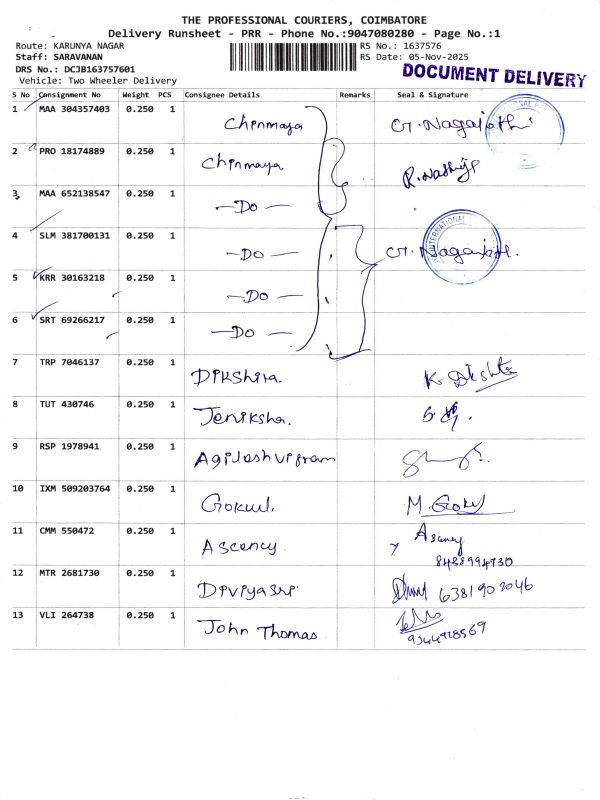 THE PROFESSIONAL COURIERS, COIMBATORE
Delivery Runsheet - PRR - Phone No.:9047080280 - Page No.:1
Route: KARUNYA NAGAR RS No.: 1637576
Staff: SARAVANAN RS Date: 05-Nov-2025
DRS No.: DCJB163757601
Vehicle: Two Wheeler Delivery
DOCUMENT DELIVERY
S No Consignment No Weight PCS Consignee Details Remarks Seal & Signature
1 MAA 304357403 0.250 1 Chinmaya G. Nagajothi
2 PRO 18174889 0.250 1 Chinmaya
3 MAA 652138547 0.250 1 —Do—
4 SLM 381700131 0.250 1 —Do— INTERNATIONAL
5 KRR 30163218 0.250 1 —Do—
6 SRT 69266217 0.250 1 —Do—
7 TRP 7046137 0.250 1 Dikshira.
8 TUT 430746 0.250 1 Jeniksha.
9 RSP 1978941 0.250 1 Agilash vigram
10 IXM 509203764 0.250 1 Gokul. M. Gokul
11 CMM 550472 0.250 1 Ascency.
8428994730
12 MTR 2681730 0.250 1 6381902046
13 VLI 264738 0.250 1 John Thomas
9344928569